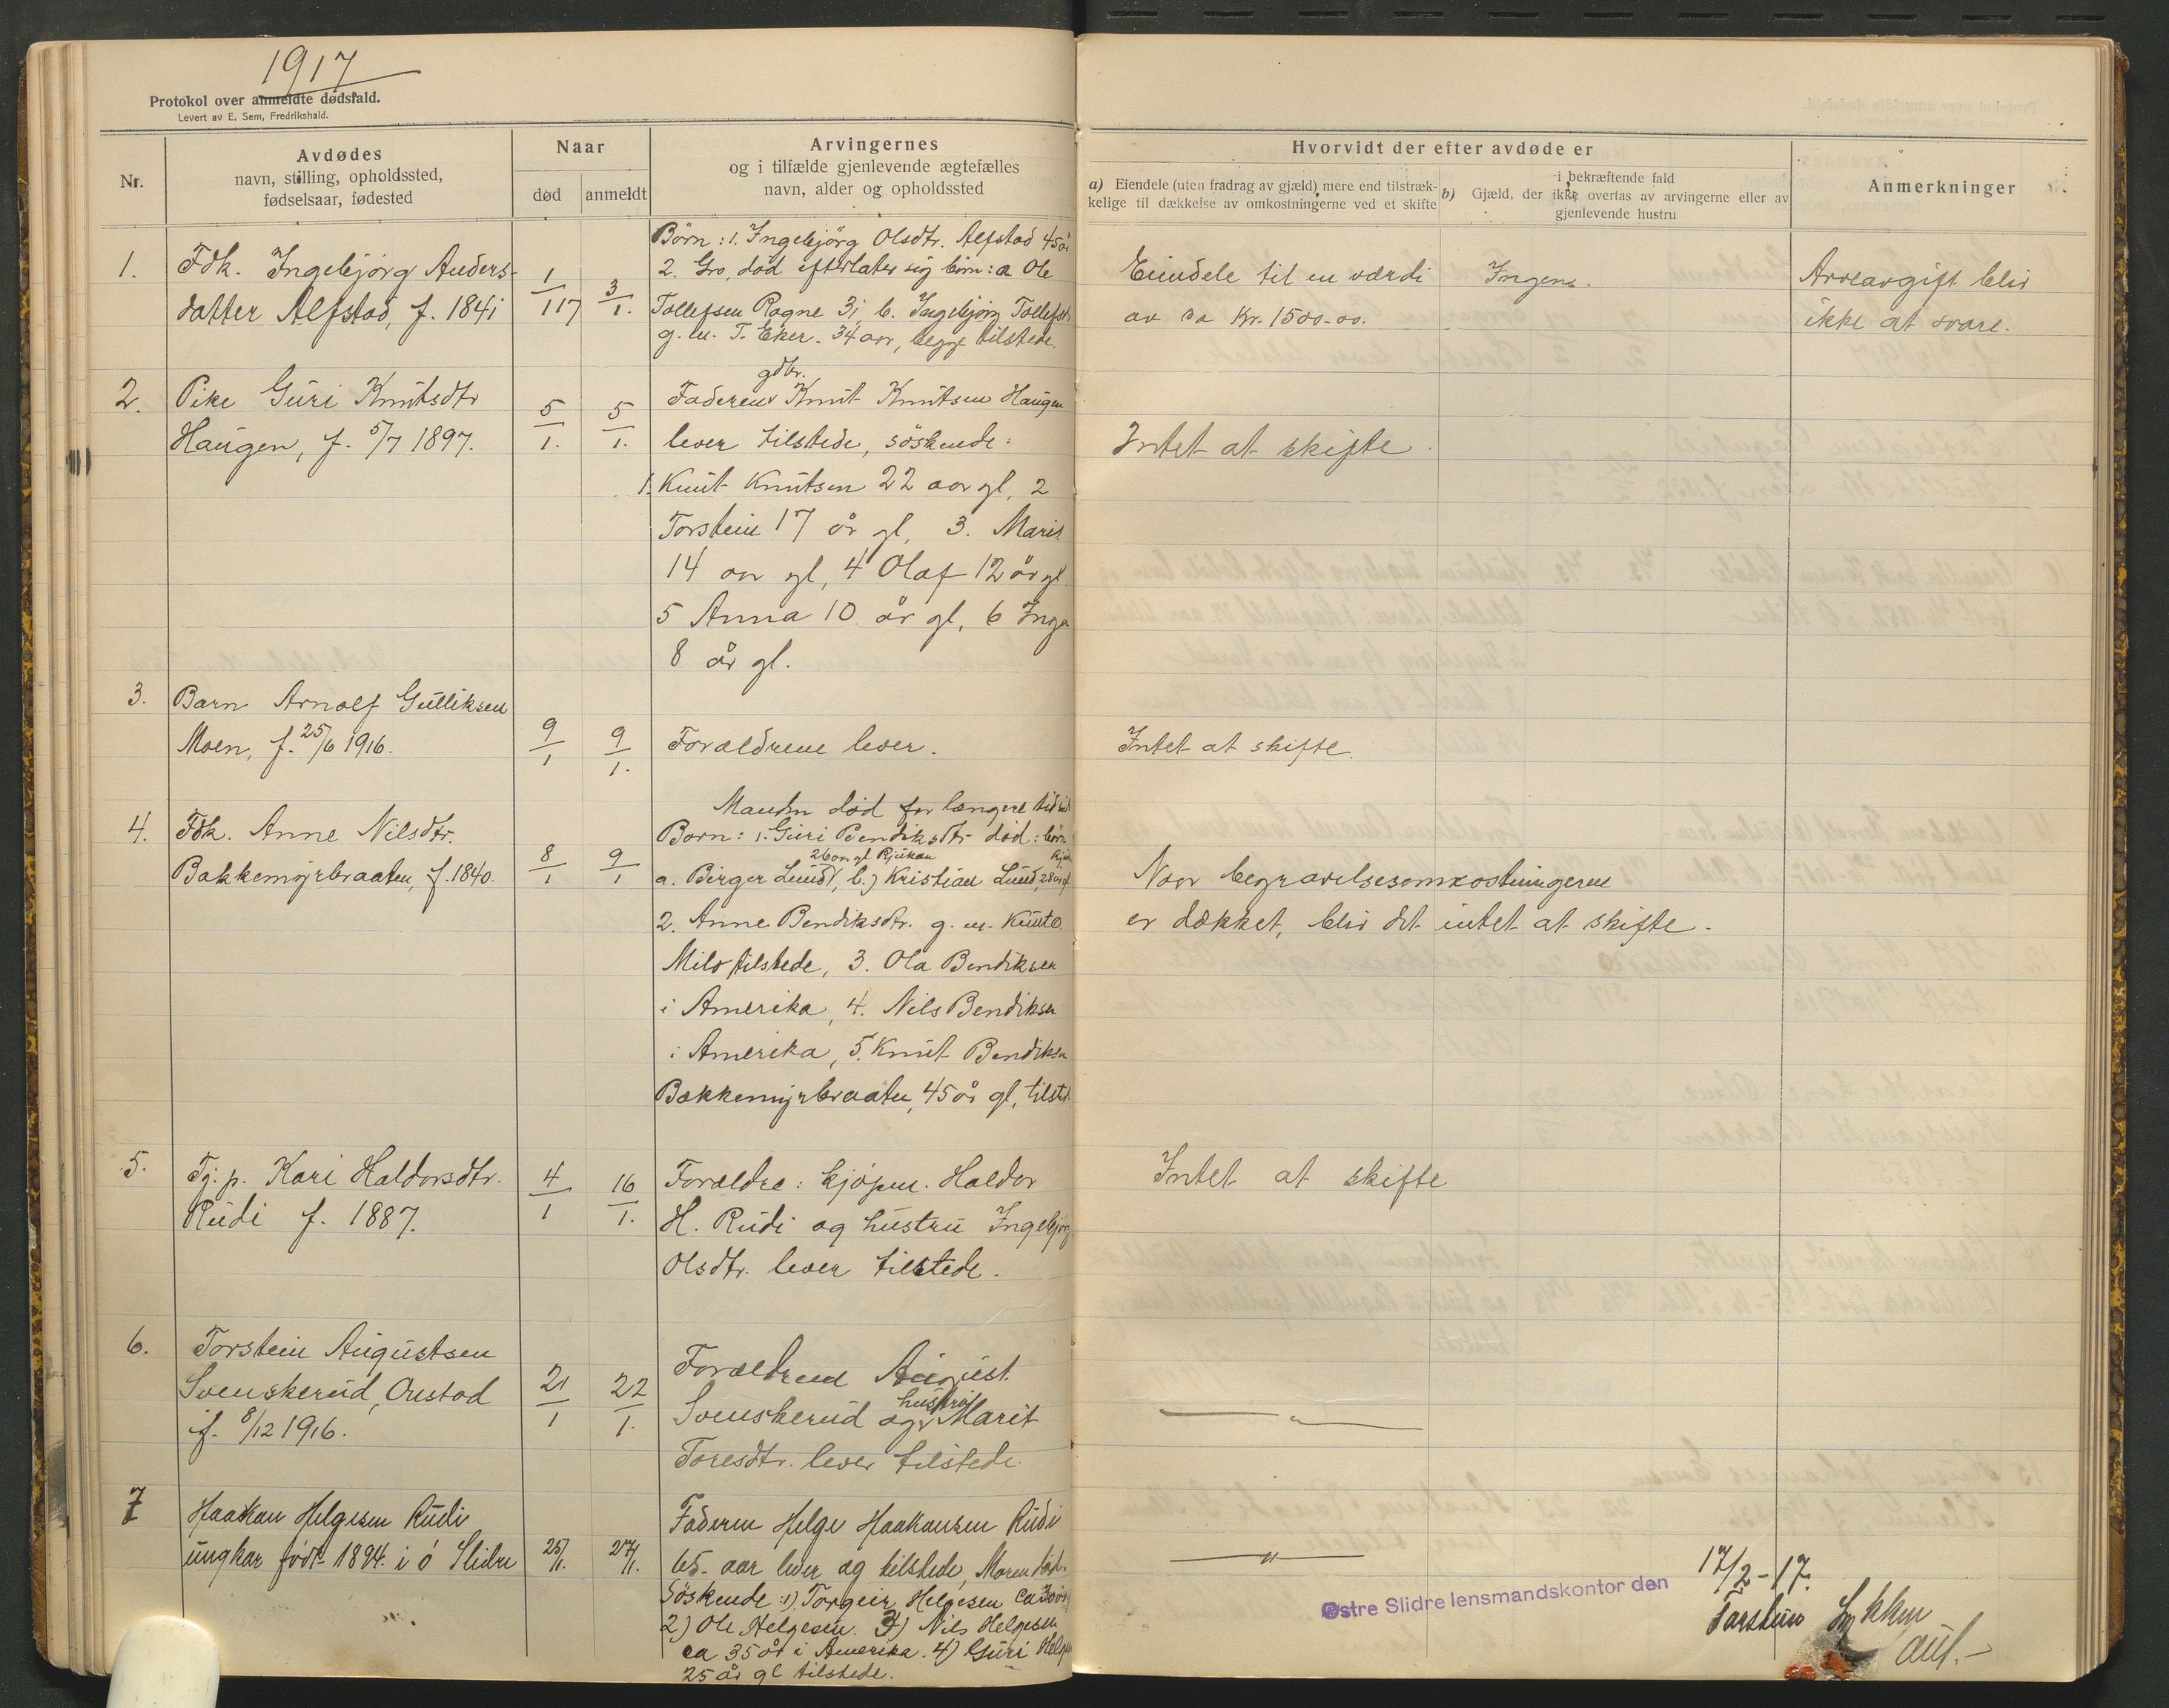 1917
Protokol over anmeldte dødsfald.
Levert av E. Sem, Fredrikshald.
Nr.
Avdødes
navn, stilling, opholdssted,
fødselsaar, fødested
Naar
død
anmeldt
Arvingernes
og i tilfælde gjenlevende ægtefælles
navn, alder og opholdssted
Hvorvidt der efter avdøde er
a) Eiendele (uten fradrag av gjæld) mere end tilstræk-
kelige til dækkelse av omkostningerne ved et skifte
i bekræftende fald
b) Gjæld, der ikke overtas av arvingerne eller av
gjenlevende hustru
Anmerkninger
1.
Fdk. Ingebjørg Anders-
datter Alfstad, f. 1841
1/1 17
3/1.
Børn: 1. Ingebjörg Olsdtr. Alfstad 45 år
2. Gro, död efterlater sig börn: a Ole
Tollefsen Rogne 31 b. Ingebjörg Tollefsdtr.
g. m. T. Eker. 34 aar, begge tilstede.
Eiendele til en værdi
av ca Kr. 1500-00.
Ingen.
Arveavgift blir
ikke at svare.
2.
Pike Guri Knutsdtr
Haugen, f. 5/7 1897.
5/1.
5/1.
gdbr.
Faderen Knut Knutsen Haugen
lever tilstede, söskende:
1. Knut Knutsen 22 aar gl, 2
Torstein 17 år gl, 3. Marit
14 aar gl, 4 Olaf 12 år gl.
5 Anna 10 år gl, 6 Inga
8 år gl.
Intet at skifte.
3.
Barn Arnolf Gulliksen
Moen, f. 25/6 1916.
9/1
9/1.
Forældrene lever.
Intet at skifte.
4.
Fdk. Anne Nilsdtr.
Bakkemyrbraaten, f. 1840.
8/1
9/1
Manden död for længere tid
Barn: 1. Guri Bendiksdtr död: börn
26 aar gl Rjukan
a. Birger Lund, b.) Kristian Lund, 28 år gl
2. Anne Bendiksdtr. g. m. Knut O.
Milo tilstede, 3. Ola Bendiksen
i Amerika, 4. Nils Bendiksen
i Amerika, 5. Knut Bendiksen
Bakkemyrbraaten, 45 år gl, tilsted.
Naar begravelsesomkostningerne
er dækket, blir det intet at skifte.
5.
Tj. p. Kari Haldorsdtr.
Rudi f. 1887.
4/1
16/1.
Forældre: kjöpm. Haldor
H. Rudi og hustru Ingebjörg
Olsdtr. lever tilstede.
Intet at skifte
6.
Torstein Augustsen
Svenskerud, Onstad
f. 8/12 1916.
21/1
22/1.
Forældrene August
Svenskerud og hustru Marit
Toresdtr. lever tilstede
— " —
7
Haakon Helgesen Rudi
ungkar født 1894. i ö Slidre
25/1.
27/1.
Faderen Helge Haakonsen Rudi
65 aar lever og tilstede, Moren död.
Söskende: 1) Torgeir Helgesen ca 30 år
2) Ole Helgesen. 3) Nils Helgesen
ca 35 år i Amerika. 4) Guri Helges
25 år gl tilstede.
— " —
Østre Slidre lensmandskontor den 17/2-17.
Torstein Lykken
aut.-